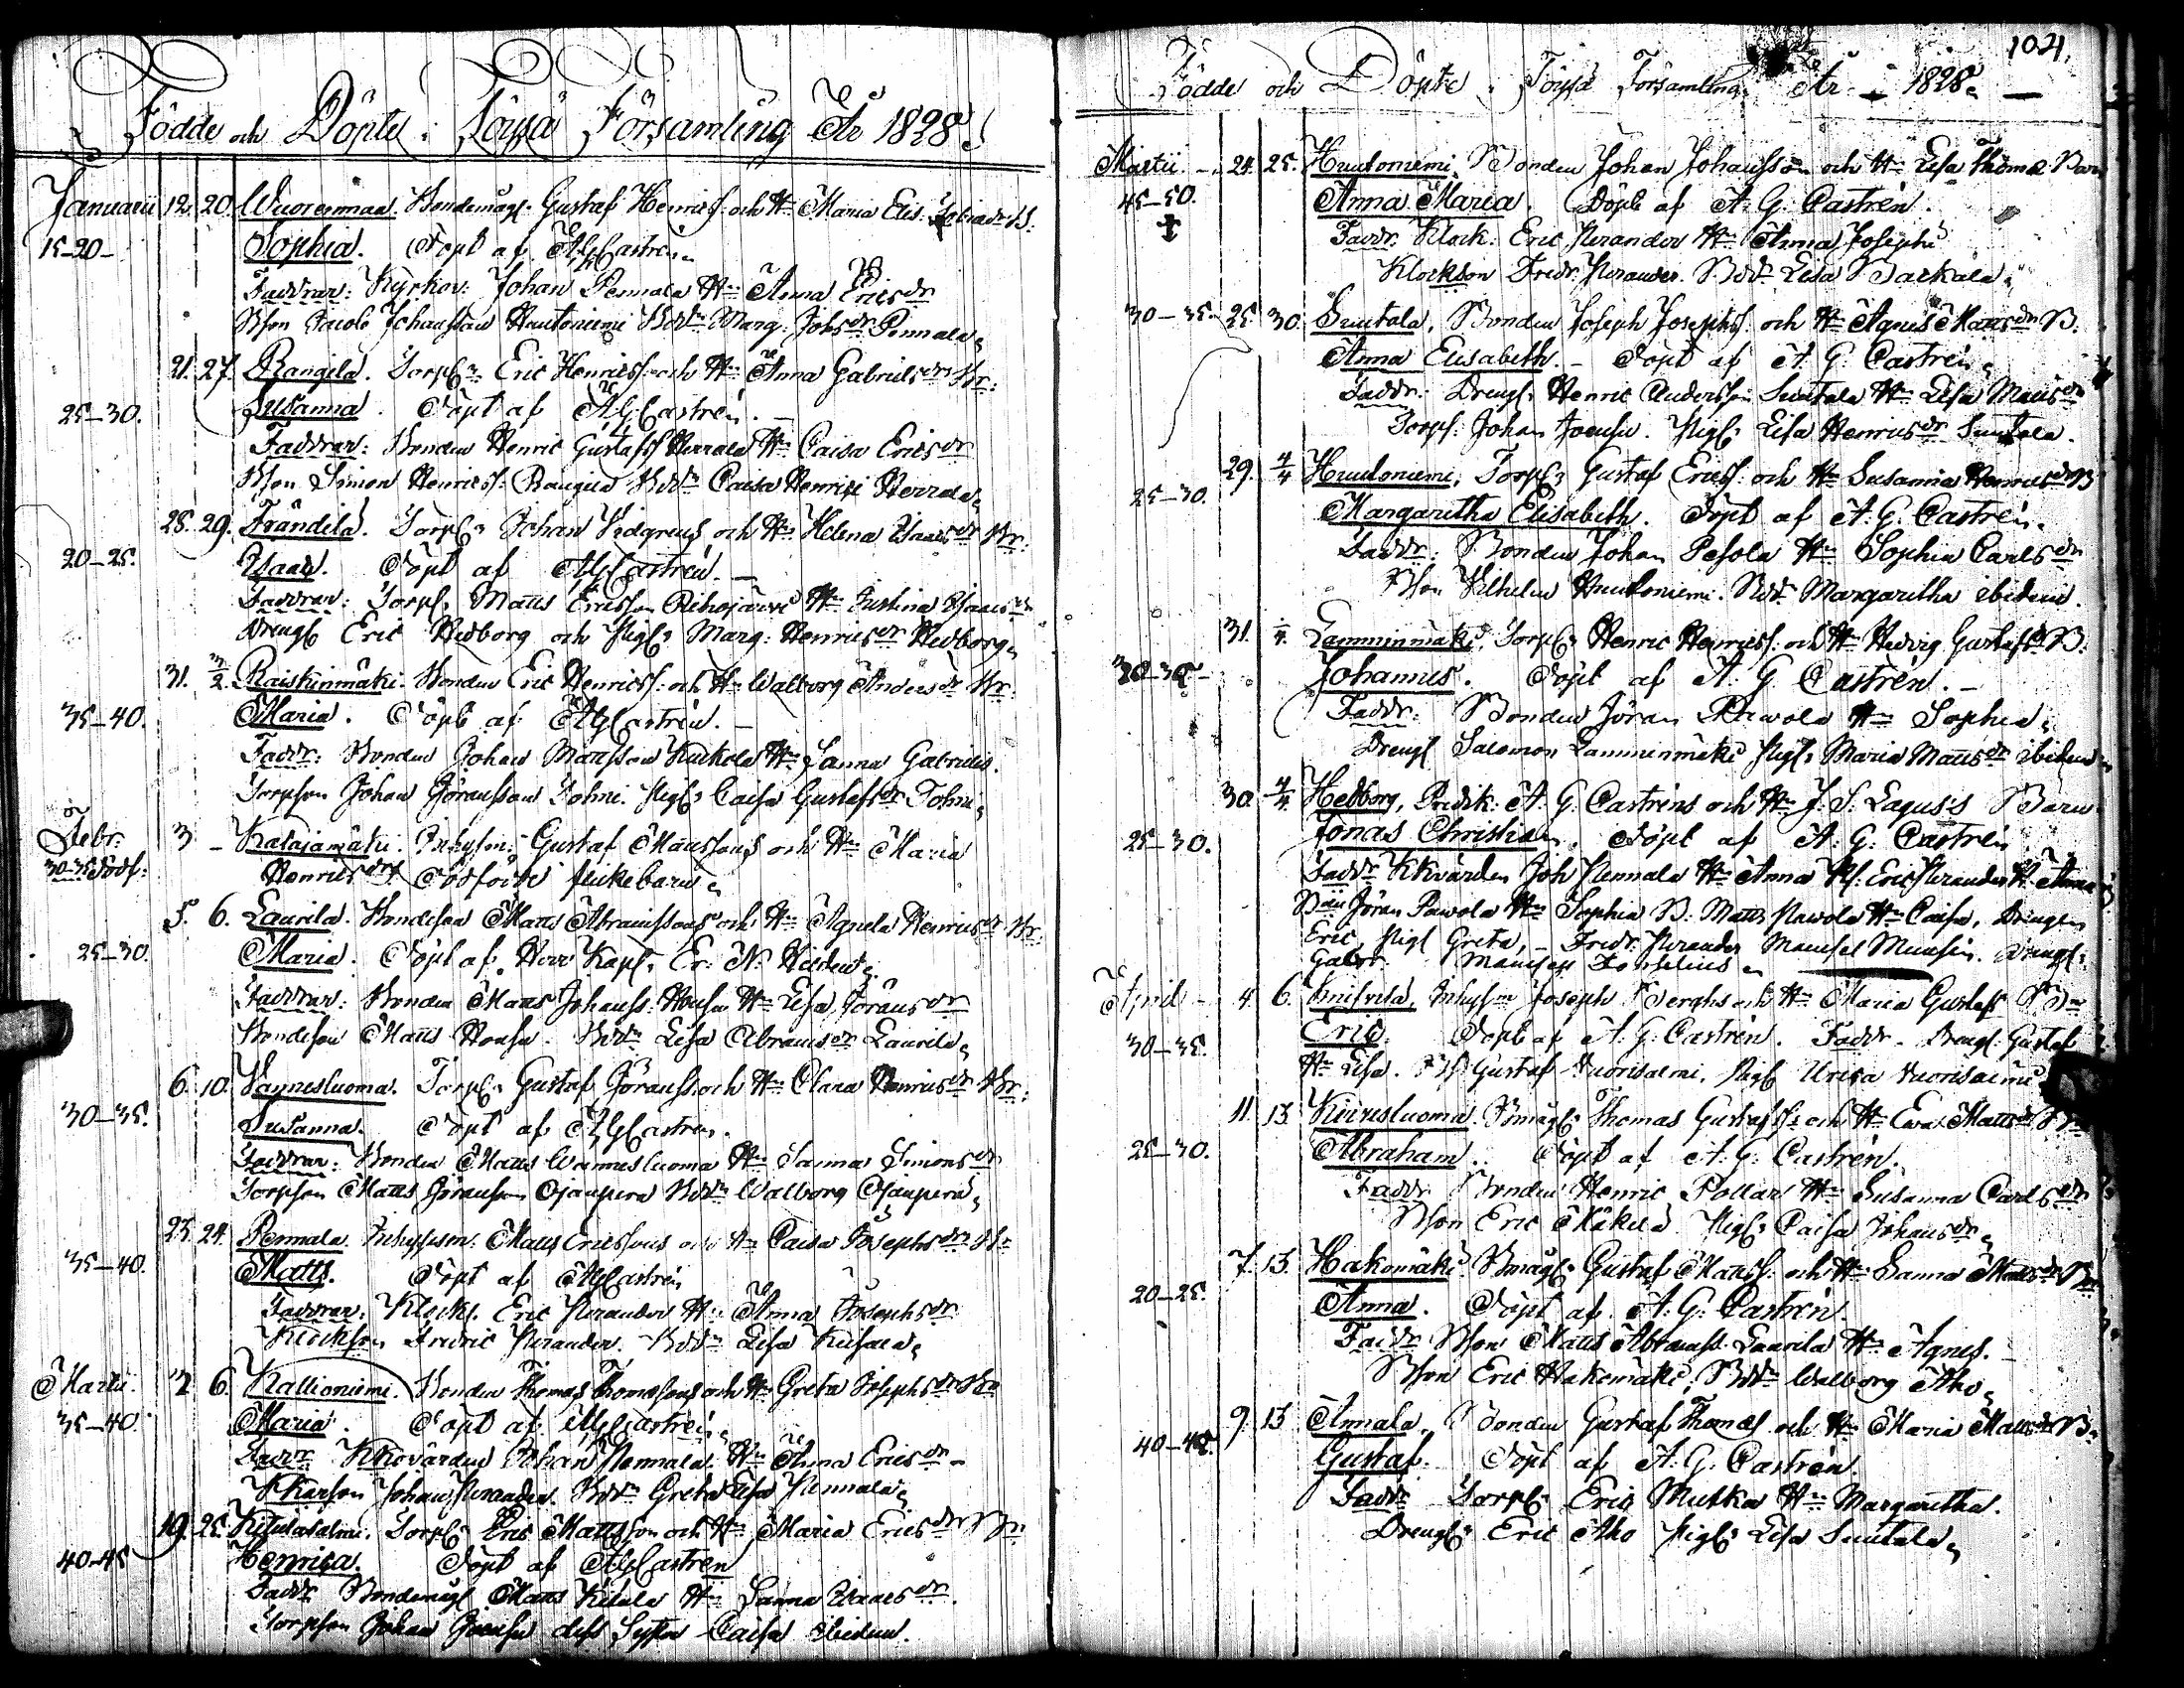 Födde och Döpte i Töysä Församling År 1828
Januarii 12. 20. Wuorenmaa. Bondemågf Gustaf Henricsf: och Hn Maria Elis.
15-20- Sophia. Döpt af A G Castrén
Faddrar: Kyrkov: Johan Pennala Hn Anna Ericsdr
Bson Jacob Johansson Huutoniemi Bdtr Marg: Johsdr Pennala
21. 27. Rangila. Torpf: Eric Henricsf: och Hn Anna Gabrielsdrs Br:
25-30. Susanna. Döpt af A G Castrén.
Faddrar: Bonden Henric Gustafsf Herrala Hn Caisa Ericsdr
Bson Simon Henricsf: Rangila Bdtr Caisa Henrici Herrala
28. 29. Frändilä. Torpf: Johan Widgrens och Hn Helena Isaacsdr Br:
20-25. Isaac. Döpt af A G Castrén.
Faddrar: Torpf: Matts Ericsson Rihojärvi Hn Justina Isaacsdr
Drengf Eric Hedborg och Pigf: Marg: Henricsdr Hedborg
31. 3/2. Raiskinmäki. Bonden Eric Henricsf: och Hn Walborg Andersdr Br:
35-40. Maria. Döpt af A G Castrén.
Faddr: Bonden Johan Mattsson Kuckola Hn Sanna Gabriels.
Torpson Johan Göransson Tohni. Pigf: Caisa Gustafsdr Tohni
Febr: 3 - Katajamäki. Inhyses: Gustaf Mattssons och Hn Maria
30-35 Dödf: Henricsdrs Dödfödt flickebarn
5. 6. Laurila. Bondeson Matts Abramssons och Hn Agneta Henricsdr Br:
25-30. Maria. Döpt af Herr Kapl. Er: N: Hildén
Faddrar: Bonden Matts Johansf: Housu Hn Lisa Göransdr
Bondeson Matts Housu. Bdtr Lisa Abramsdr Laurila
6. 10. Vaynesluoma. Torpf: Gustaf Göransf: och Hn Clara Henricsdr Br:
30-35. Susanna. Döpt af A G Castrén.
Faddrar: Bonden Matts Wainesluoma Hn Sanna Simonsdr
Torpson Matts Göransson Ojanperä Bdtr Walborg Ojanperä
23. 24. Pennala Inhysesm: Matts Ericssons och Hn Caisa Josephsdr Br
35-40. Matts. Döpt af A G Castrén
Faddrar: Klock. Eric Nerander Hn Anna Josephsdr
Klockson Fredric Nerander. Bdtr Lisa
Martii. 2 6. Kallioniemi. Bonden Thomas Thomassons och Hn Greta Josephsdr Bn
35-40. Maria. Döpt af A G Castrén
Faddr Kkovärden Johan Pennala Hn Anna Ericsdr -
Johan Nerander. Bdtr Greta Lisa Pennala
19. 25. Kitusalmi. Torpf: Eric Mattsson och Hn Maria Ericsdr Bn
40-45 Henrica. Döpt af A G Castrén
Faddr Bondemågf Matts Kitula Hn Sanna Isaacsdr.
Torpson Johan Joensu dess Syster Caisa ibidem.
104.
Födde och Döpte i Töysä Församling År 1828.
Martii 24. 25. Huutoniemi. Bonden Johan Johansson och Hn Lisa Thomæ Barn
45-50. Anna Maria. Döpt af A: G: Castrén.
Faddr. Klock: Eric Nerander Hn Anna Josephi
Klockson Fredr: Nerander. Bdtr Lisa
30-35. 25. 30. Suutala. Bonden Joseph Josephsf: och Hn Agnes Mattsdr B:
Anna Elisabeth. - Döpt af A. G. Castrén
Faddr: Drengf: Henric Andersson Suutala Hn Lisa Mattsdr
Torpf: Johan Joensu. Pigf: Lisa Henricsdr Suutala.
29. 4/4 Huutoniemi. Torpf: Gustaf Ericsf: och Hn Susanna Henricsdr B
25-30. Margaretha Elisabeth. Döpt af A: G: Castrén.
Faddr: Bonden Johan Pesola Hn Sophia Carlsdr
Bson Wilhelm Huutoniemi. Bdtr Margaretha ibidem.
31. Lamminmäki. Torpf: Henric Henricsf: och Hn Hedvig Gustafsdr B:
Johannes. Döpt af A: G Castrén. -
Faddr: Bonden Jöran Pawola Hn Sophia
Drengf Salomon Lamminmäki Pigf: Maria Mattsdr ibidem
30 4/4 Hedborg, Predik: A: G. Castréns och Hn J. S. Lagus's Barn
25-30. Jonas Christian. Döpt af A: G: Castrén
Faddr Kkvärden Joh Pennala Hn Anna Kl: Eric Nerander H: Anna
Bden Jöran Pawola Hn Sophia B: Matts Pawola Hn Caisa, Drengen
Eric, Pigf Greta, - Fredr. Nerander Mamsel Munsin. Drengf:
Gabr. Mamsell Forselius
April - 4. 6. Inhysm Joseph Berghs och Hn Maria Gustafs Bn
30-35. Eric. Döpt af A: G: Castrén. Faddr. Drengf: Gustaf
Hn Lisa. Gustaf Vuorisalmi, Pigf Ulrica Vuorisalmi
11. 13. Kiiresluoma. Bmågf: Thomas Gustafsf: och Hn Eva Mattsdr Bn
25-30. Abraham. Döpt af A: G: Castrén.
Faddr Bonden Henric Pollari Hn Susanna Carlsdr
Bson Eric Mäkelä Pigf: Caisa Johansdr
7. 13. Hakomäki. Bmågf: Gustaf Mattsf: och Hn Sanna Mattsdr Bn
20-25. Anna. Döpt af A: G: Castrén.
Faddr Bson Matts Abramsf. Laurila Hn Agnes.
Bson Eric Hakomäki, Bdtr Walborg Aho
9. 13 Annala. Bonden Gustaf Thomæ och Hn Maria Mattsdr B.
40-45. Gustaf. Döpt af A. G. Castrén.
Faddr Torpf: Eric Mutka Hn Margaretha.
Drengf: Eric Aho Pigf: Lisa Suutala